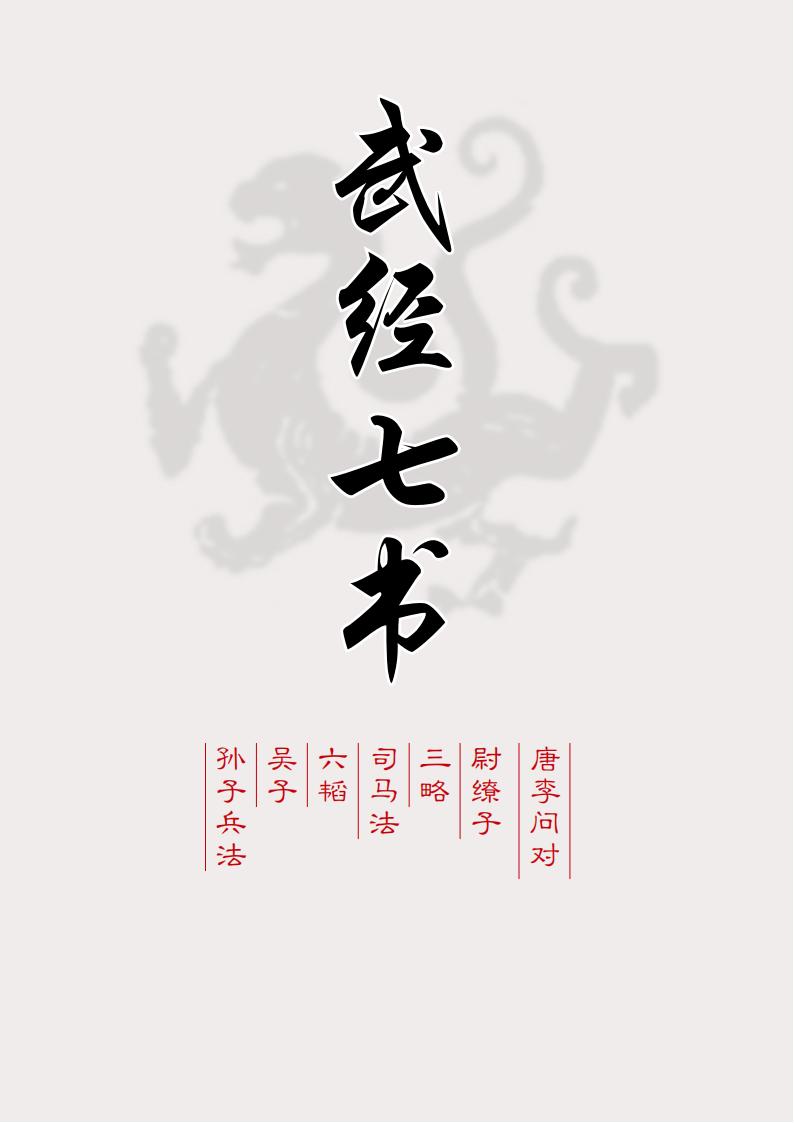 武经七书
孙子兵法
吴子
六韬
司马法
三略
尉缭子
唐李问对